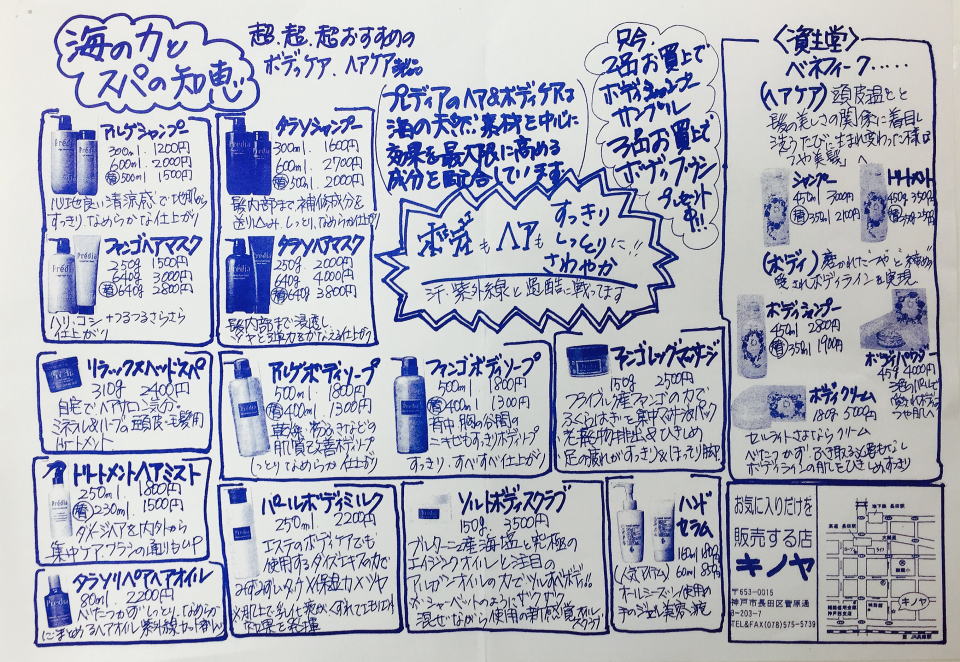 海の力と
スパの知恵
超、超、超おすすめの
ボディケア、ヘアケア製品
プレディアのヘア&ボディケアは
海の天然素材を中心に
効果を最大限に高める
成分を配合しています
只今、
2缶お買上で
ボディシャンプー
サンプル
3缶お買上で
プレゼント
中!!
アルゲシャンプー
300ml. 1200円
600ml. 2000円
500ml 1500円
心地良い清涼感で地肌から
すっきりなめらかな仕上がり
ファンゴヘアマスク
250g 1500円
640g 3000円
640g 2800円
ハリ、コシ+つるつるさらさら
仕上がり
タラソシャンプー
300ml. 1600円
600ml. 2700円
500ml. 2000円
髪内部まで補修成分を
送り込み しっとり、なめらか仕上がり
タラソヘアマスク
250g 2000円
640g 4000円
640g 3800円
髪内部まで浸透し
ツヤと弾力をかなえる仕上がり
もヘアも
すっきり
しっとり
さわやかに!!
汗・紫外線と過酷に戦ってます
〈資生堂〉
ベネフィーク.....
(ヘアケア) 頭皮温と
髪の美しさの関係に着目し
洗うたびに生まれ変わった様な
つや美髪へ
シャンプー
450ml 3000円
350ml 2100円
トリートメント
450g 3500円
(ボディ) 磨かれたつやと練
愛されボディラインを実現
ボディシャンプー
450ml 2800円
350ml 1900円
ボディパウダー
45g 4000円
つや肌へ
ボディクリーム
180g 5000円
セルライトさよならクリーム
ボディラインの肌もひきしめすっきり
リラックスヘッドスパ
310g 2400円
自宅でヘアサロン気分
ミネラル&ハーブの頭皮・毛髪用
トリートメント
アルゲボディソープ
500ml 1800円
400ml 1300円
肌質改善ボディソープ
しっとりなめらか仕上がり
ファンゴボディソープ
500ml 1800円
400ml 1300円
背中 胸の谷間の
ニキビもすっきりボディソープ
すっきり、すべすべ仕上がり
ファンゴレッグマッサージ
150g 2500円
プライブルク産ファンゴの力で
ふくらはぎを集中くるおすパック
老廃物排出&ひきしめ
足の疲れがすっきり&ほっそり脚
トリートメントヘアミスト
250ml. 1800円
230ml. 1500円
ダメージヘアを内外から
集中ケア ブラシの通りもUP
タラソリペアヘアオイル
80ml. 2200円
べたつかず しっとり、なめらか
にまとめるヘアオイル 紫外線カット
パールボディミルク
250ml 2200円
エステのボディケアでも
使用するダイエスエの力で
ソルトボディスクラブ
150g. 3500円
ブルターニュ産海塩と究極の
エイジングオイルと注目の
アルガンオイルの力でツルすべボディ!!
※シャーベットのようにザクザク
混ぜながら使用の新感覚オイル
スクラブ
ハンド
セラム
(人気アイテム)
オールシーズン使用の
手のジェル美容液
お気に入りだけを
販売する店
キノヤ
〒653-0015
神戸市長田区菅原通
8-203-7
TEL&FAX(078)575-5739
キノヤ